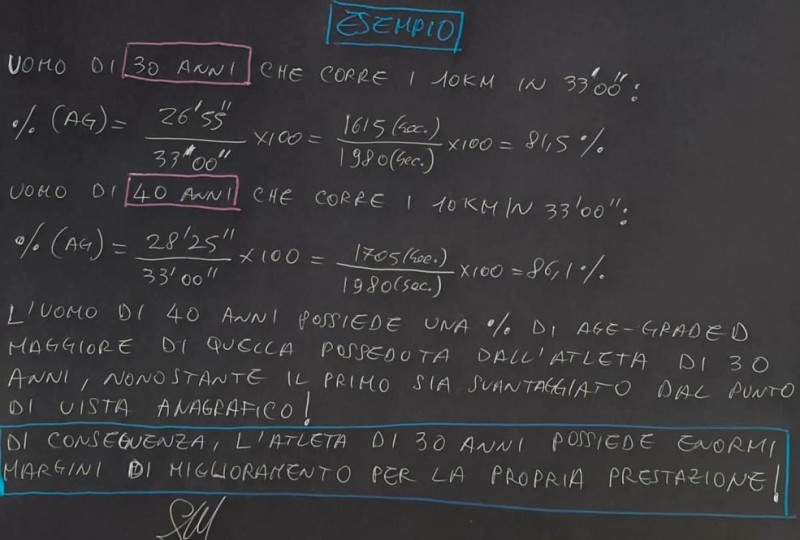 ESEMPIO
UOMO DI 30 ANNI CHE CORRE I 10KM IN 33'00":
% (AG) = 26'55" / 33'00" x100 = 1615 (sec.) / 1980 (sec.) x100 = 81,5 %
UOMO DI 40 ANNI CHE CORRE I 10KM IN 33'00":
% (AG) = 28'25" / 33'00" x100 = 1705 (sec.) / 1980 (sec.) x100 = 86,1 %
L'UOMO DI 40 ANNI POSSIEDE UNA % DI AGE-GRADED
MAGGIORE DI QUELLA POSSEDUTA DALL'ATLETA DI 30
ANNI, NONOSTANTE IL PRIMO SIA SVANTAGGIATO DAL PUNTO
DI VISTA ANAGRAFICO!
DI CONSEGUENZA, L'ATLETA DI 30 ANNI POSSIEDE ENORMI
MARGINI DI MIGLIORAMENTO PER LA PROPRIA PRESTAZIONE!